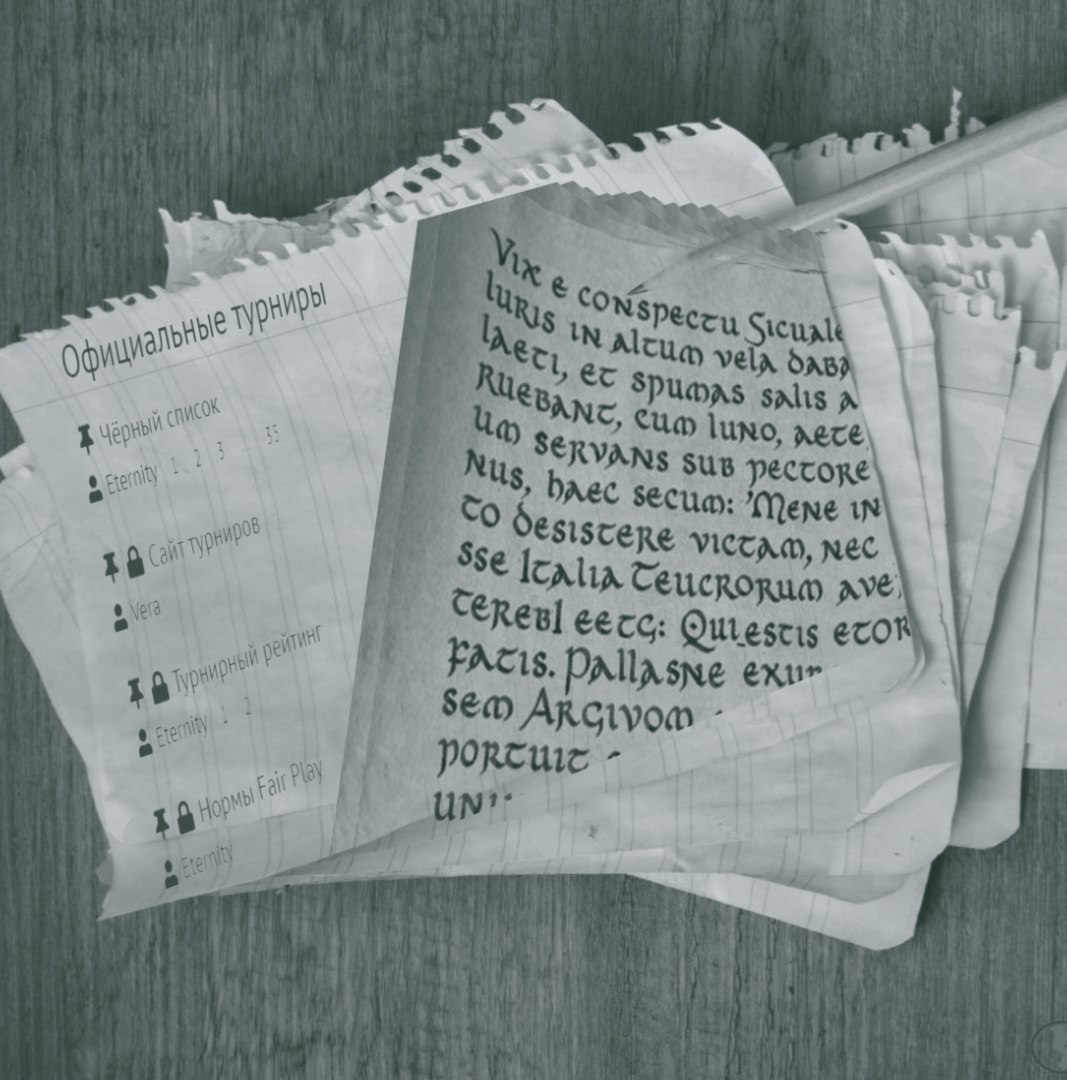 Официальные турниры
Чёрный список
Eternity 1 2 3 ... 35
Сайт турниров
Vera
Турнирный рейтинг
Eternity 1 2
Нормы Fair Play
Eternity
Vix e conspectu Sicual
luris in altum vela dab
laeti, et spumas salis a
ruebant, cum luno, aete
um servans sub pectore
nus, haec secum: 'Mene in
to desistere victam, nec
sse Italia Teucrorum ave
terebl eetg: Qui estis etor
fatis. Pallasne exur
sem Argivom
portuit
un